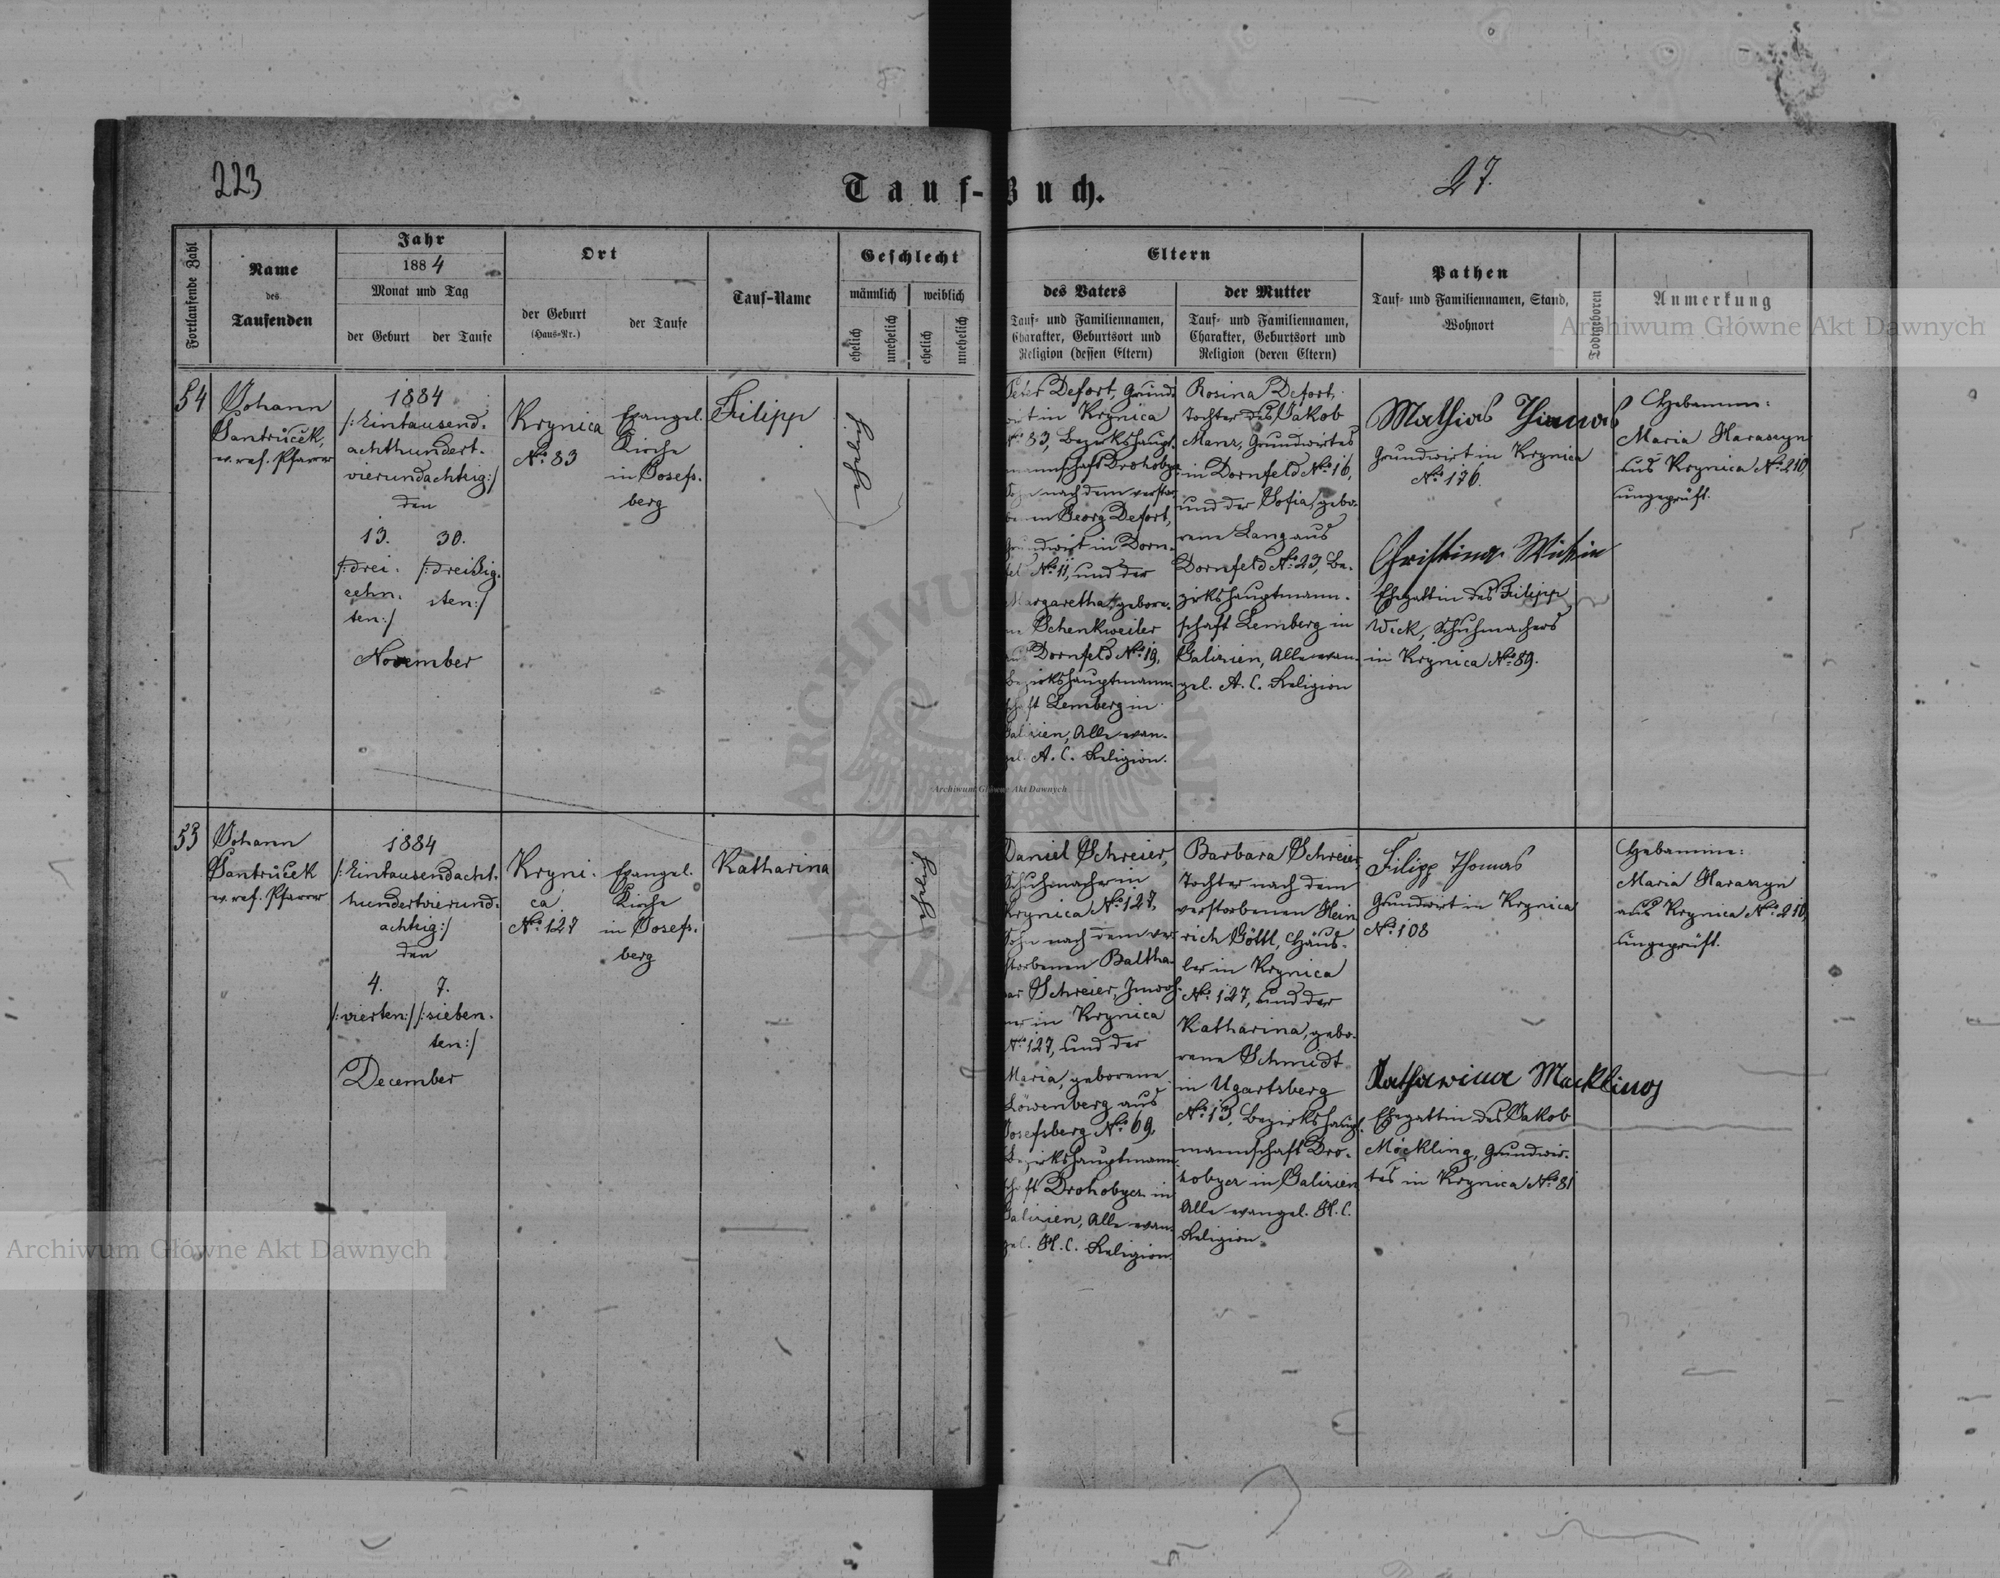 223
27.
Tauf-Buch.
Fortlaufende Zahl
Name
des
Taufenden
Jahr
1884
Monat und Tag
der Geburt
der Taufe
Ort
der Geburt
(Haus-Nr.)
der Taufe
Tauf-Name
Geschlecht
männlich
weiblich
ehelich
unehelich
ehelich
unehelich
Eltern
des Vaters
Tauf- und Familiennamen,
Charakter, Geburtsort und
Religion (dessen Eltern)
der Mutter
Tauf- und Familiennamen,
Charakter, Geburtsort und
Religion (deren Eltern)
Pathen
Tauf- und Familiennamen, Stand,
Wohnort
Todtgeboren
Anmerkung
54
Johann
Jantrůček,
ev. ref. Pfarrer
1884
/:Eintausend-
achthundert-
vierundachtzig:/
den
13.
30.
/:drei-
zehn-
ten:/
/:dreißig-
sten:/
November
Krynica
No. 83
Evangel.
Kirche
in Josefs-
berg
Filipp
ehelich
Peter Defort, Grund-
wirt in Krynica
No. 83, Bezirkshaupt-
mannschaft Drohobycz
Sohn nach dem verstor-
benen Georg Defort,
Grundwirt in Dorn-
feld No. 11, und der
Margaretha, gebore-
ne Schenkweiler
aus Dornfeld No. 19,
Bezirkshauptmann-
schaft Lemberg in
Galizien, Alle evan-
gel. A. C. Religion.
Rosina Defort
Tochter des Jakob
Manz, Grundwirtes
in Dornfeld No. 16,
und der Sofia, gebo-
rene Lang aus
Dornfeld No. 23, Be-
zirkshauptmann-
schaft Lemberg in
Galizien, Alle evan-
gel. A. C. Religion
Mathias Thomas
Grundwirt in Krynica
No. 176.
Christina
Ehegattin des Filipp
Wick, Schuhmachers
in Krynica No. 89.
Hebamme:
Maria Haraszyn
aus Krynica No. 210,
ungeprüft.
53
Johann
Jantrůček
ev. ref. Pfarrer
1884
/:Eintausendacht-
hundertvierund-
achtzig:/
den
4.
7.
/:vierten:/
/:sieben-
ten:/
December
Kryni-
ca
No. 127
Evangel.
Kirche
in Josefs-
berg
Katharina
ehelich
Daniel Schreier,
Schuhmacher in
Krynica No. 127,
Sohn nach dem ver-
storbenen Baltha-
sar Schreier, Inwoh-
ner in Krynica
No. 127, und der
Maria, geborene
Löwenberg aus
Josefsberg No. 69,
Bezirkshauptmann-
schaft Drohobycz in
Galizien, Alle evan-
gel. H. C. Religion.
Barbara Schreier
Tochter nach dem
verstorbenen Hein
rich Göttl, Häus-
ler in Krynica
No. 127, und der
Katharina, gebo-
rene Schmidt
in Ugartsberg
No. 13, Bezirkshaupt-
mannschaft Dro-
hobycz in Galizien
Alle evangel. H. C.
Religion
Filipp Thomas
Grundwirt in Krynica
No. 108
Katharina Mackling
Ehegattin des Jakob
Möckling, Grundwir-
tes in Krynica No. 81
Hebamme:
Maria Haraszyn
aus Krynica No. 210,
ungeprüft.
Archiwum Główne Akt Dawnych
Archiwum Główne Akt Dawnych
Archiwum Główne Akt Dawnych